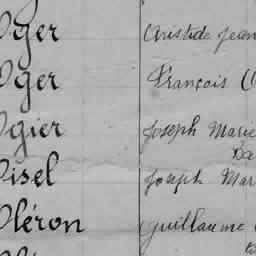 Oger Aristide Jean
Oger François
Ogier Joseph Marie
Ba
Oisel Joseph Mar
Oléron Guillaume